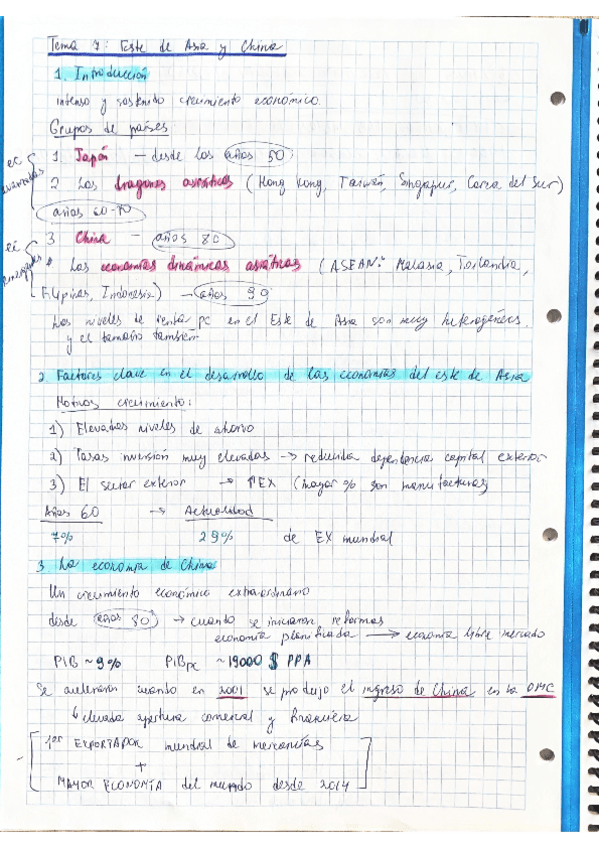 Tema 7: Este de Asia y China
1. Introducción
intenso y sostenido crecimiento económico.
Grupos de países
ec avanzadas
1 Japón — desde los años 50
2 Los dragones asiáticos (Hong Kong, Taiwán, Singapur, Corea del Sur)
años 60-70
ec emergentes
3 China — años 80
Las economías dinámicas asiáticas (ASEAN: Malasia, Tailandia,
Filipinas, Indonesia) — años 90
Los niveles de renta pc en el Este de Asia son muy heterogéneos
y el tamaño también
2. Factores clave en el desarrollo de las economías del este de Asia
Motivos crecimiento:
1) Elevados niveles de ahorro
2) Tasas inversión muy elevadas -> reducida dependencia capital exterior
3) El sector exterior -> ↑EX (mayor % son manufacturas)
Años 60 -> Actualidad
7% 29% de EX mundial
3. La economía de China
Un crecimiento económico extraordinario
desde años 80 -> cuando se iniciaron reformas
economía planificada -> economía libre mercado
PIB ~9% PIBpc ~19000 $ PPA
Se aceleraron cuando en 2001 se produjo el ingreso de China en la OMC
↳ elevada apertura comercial y financiera
1er EXPORTADOR mundial de mercancías
+
MAYOR ECONOMÍA del mundo desde 2014